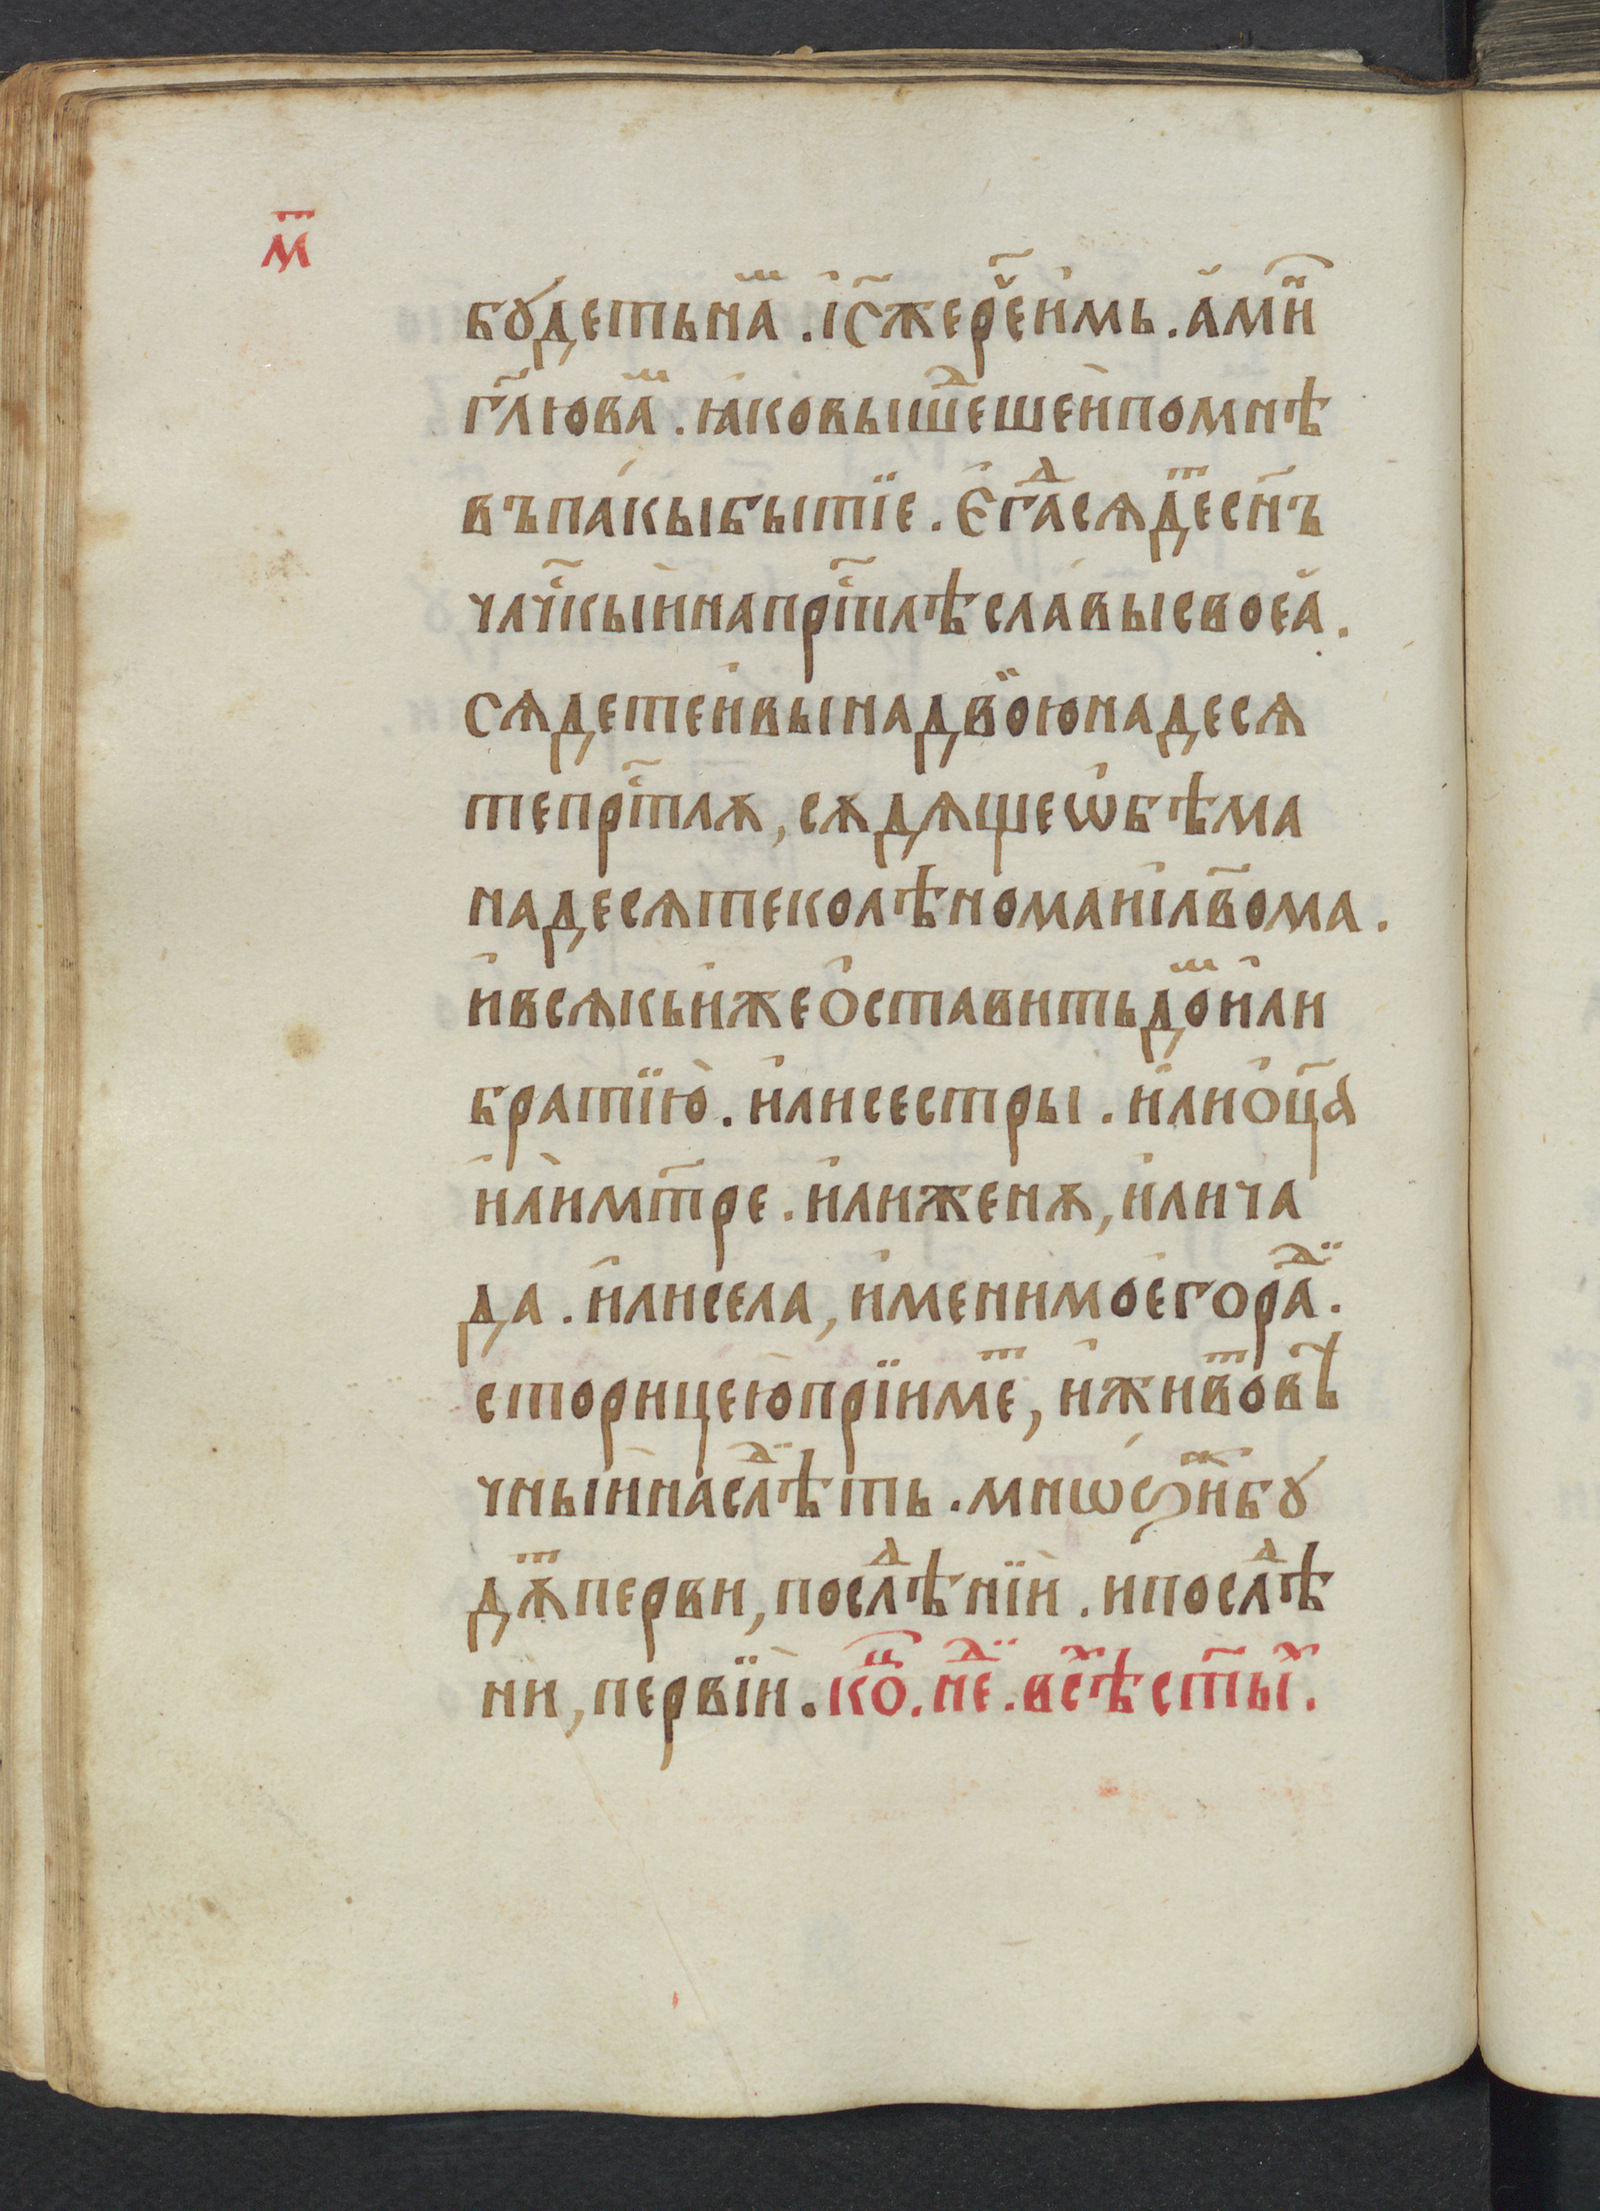 м҃
бꙋдетьнаⷨ . і҆с҃жереⷱ҇и҆мь . а҆миⷩ҇
гл҃юваⷨ . ꙗ҆ковышеⷣшеи҆помнѣ
въпа́кыбытїе . Є҆гдⷶ҇сѧдеⷮсн҃ъ
члч҇кыи҆напрⷭ҇тлѣсла́высвоеа̀ .
сѧдетеи҆вынадвоюнадесѧ
тепрⷭ҇тлѫ , сѧдѧщеѡ҆бѣма
надесѧтеколѣноманіл҃вома .
и҆всѧкьи҆жео҆ставитьдоⷨи҆ли
братїю̀ . и҆лисестры . и҆лио҆ц҃а
и҆лѝмт҃ре . и҆лиженѫ , и҆лича
да . и҆лисела , и҆менимое҆гораⷣ .
сторицеюпрїимеⷮ , и҆живоⷮвѣⷱ҇
чныинаслѣⷣть . мнѡѕиⷤбꙋ
дѫⷮперви , послѣⷣнїи . ипослѣⷣ
ни , первїи . коⷰ . неⷣ . всѣⷯст҃ыⷯ .